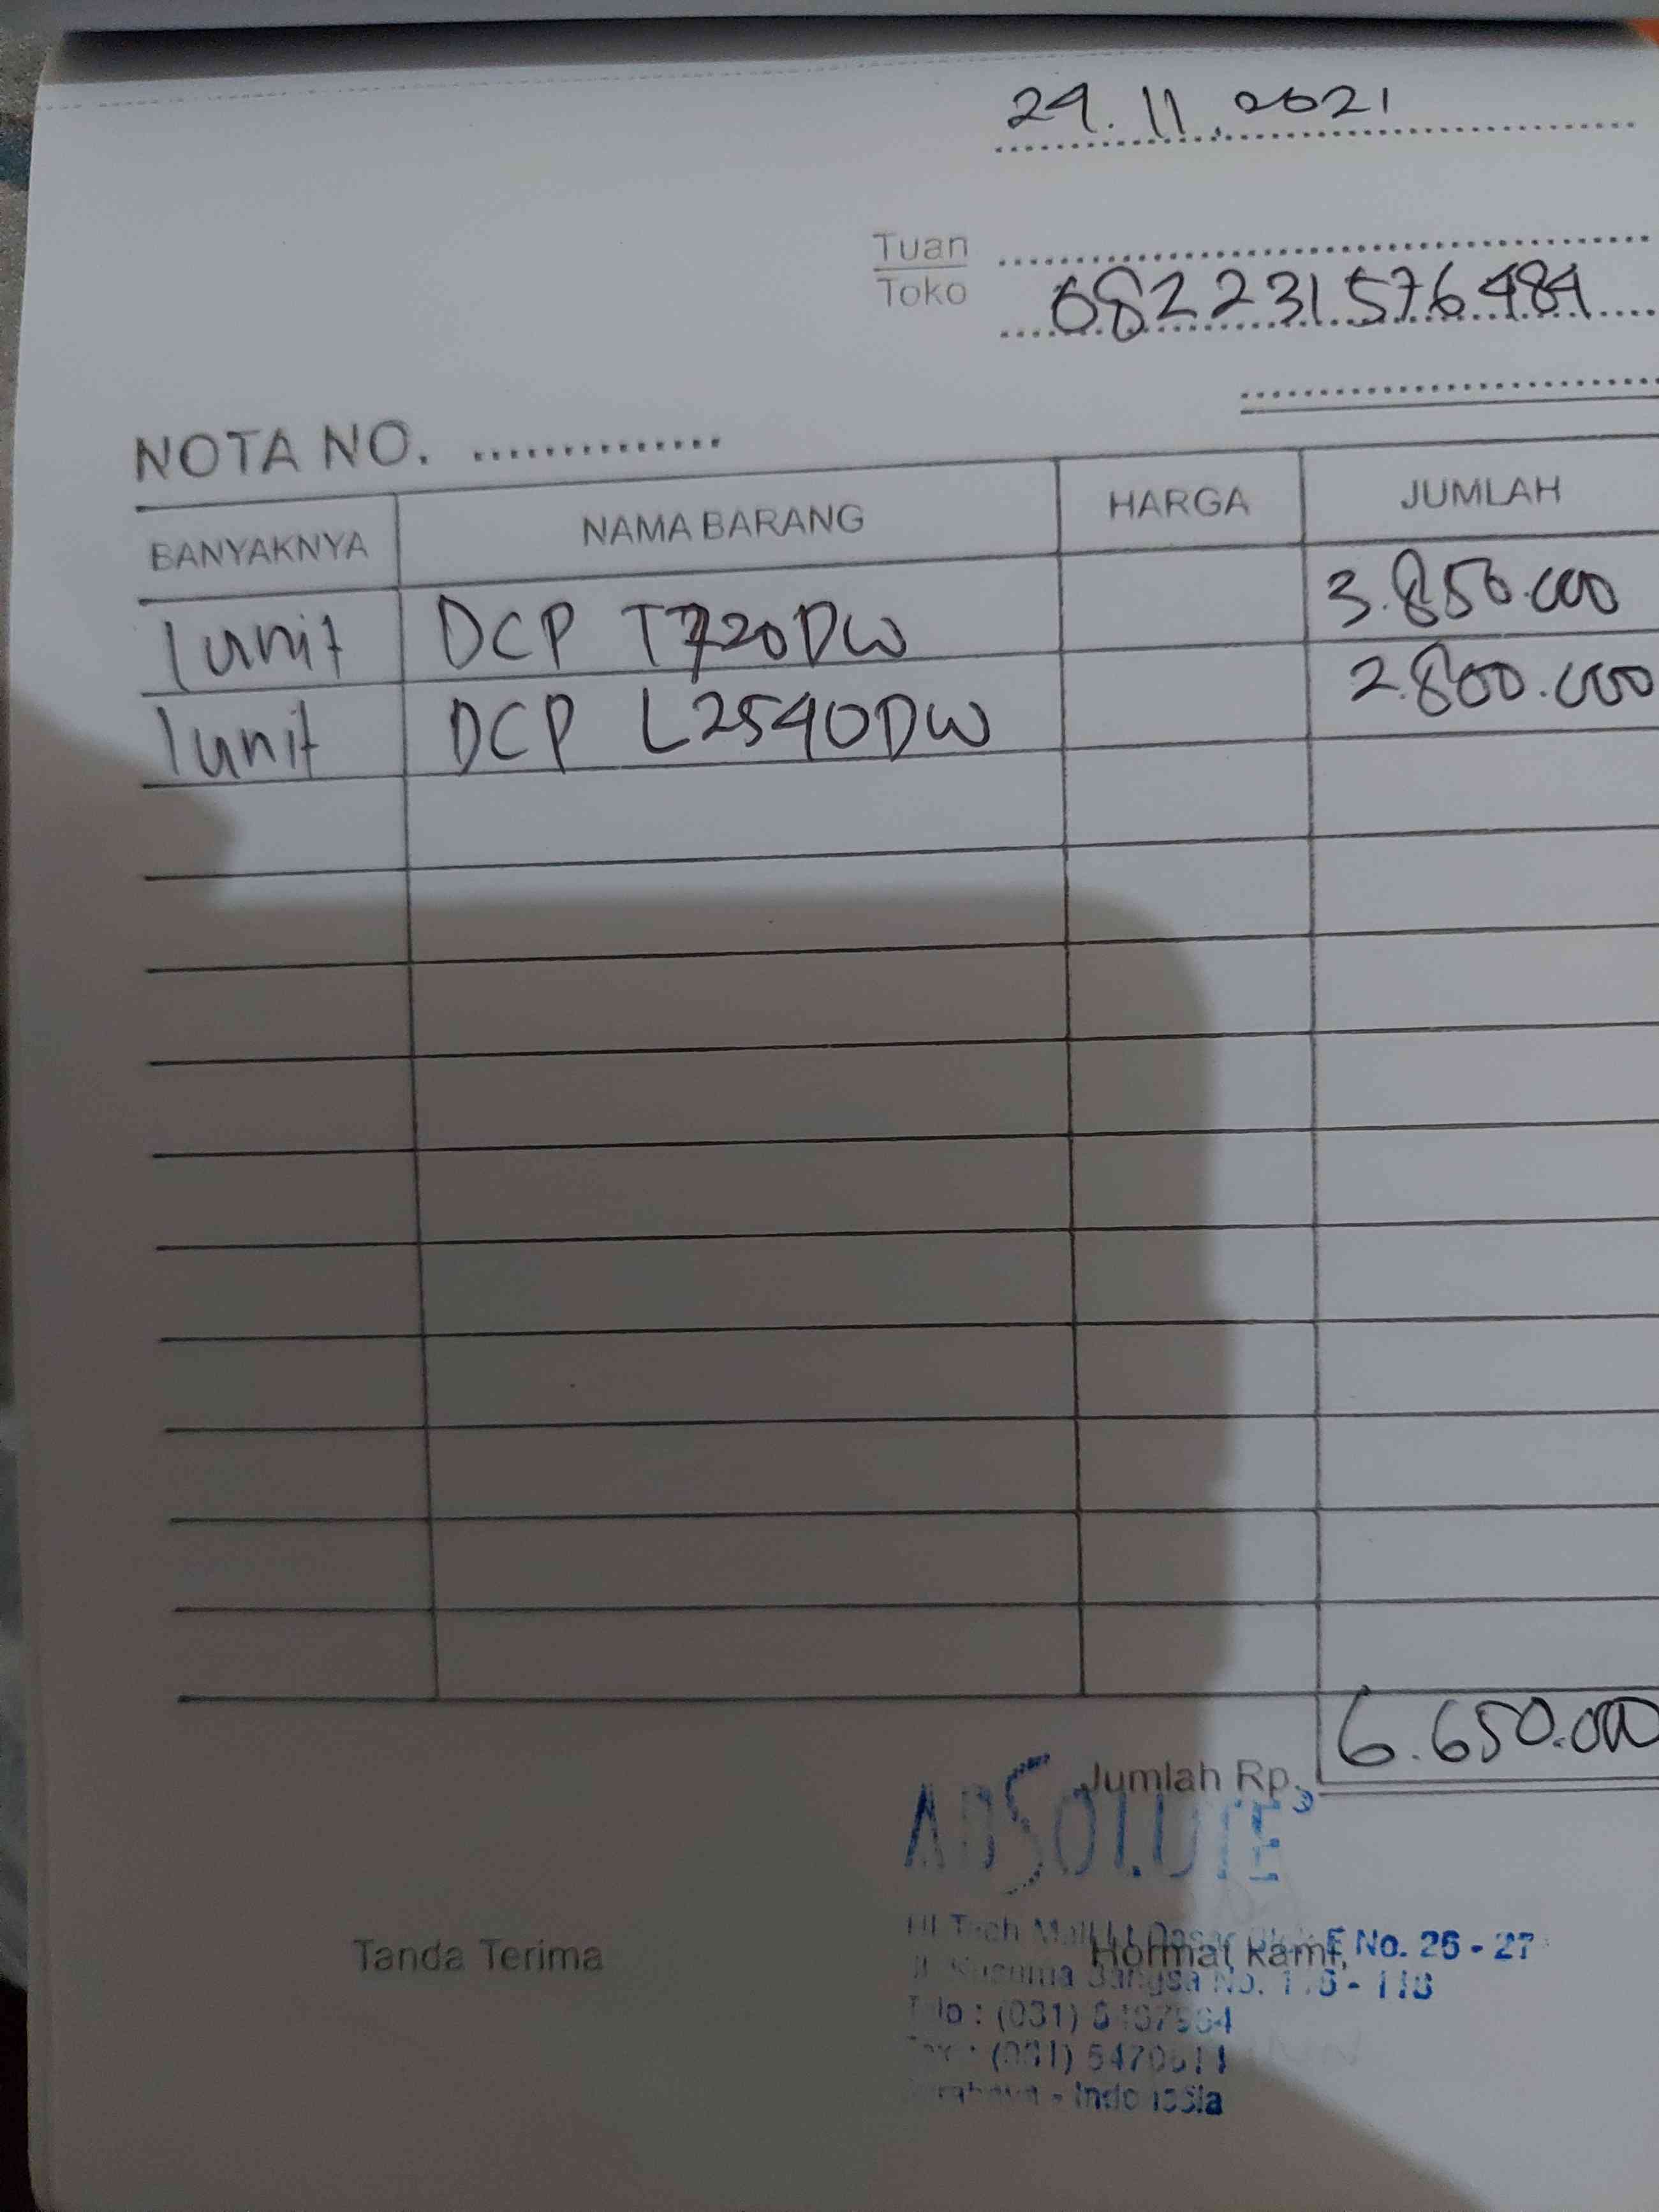 29.11.2021
Tuan
Toko 082231576484
NOTA NO. ..............
BANYAKNYA NAMA BARANG HARGA JUMLAH
1 unit DCP T720DW 3.850.000
1 unit DCP L2540DW 2.800.000
Jumlah Rp. 6.650.000
ABSOLUTE
Tanda Terima Hormat kami,
Hi Tech Mall Lt Dasar F No. 26 - 27
Kusuma Bangsa No. 116 - 118
(031)
(031)
- Indonesia